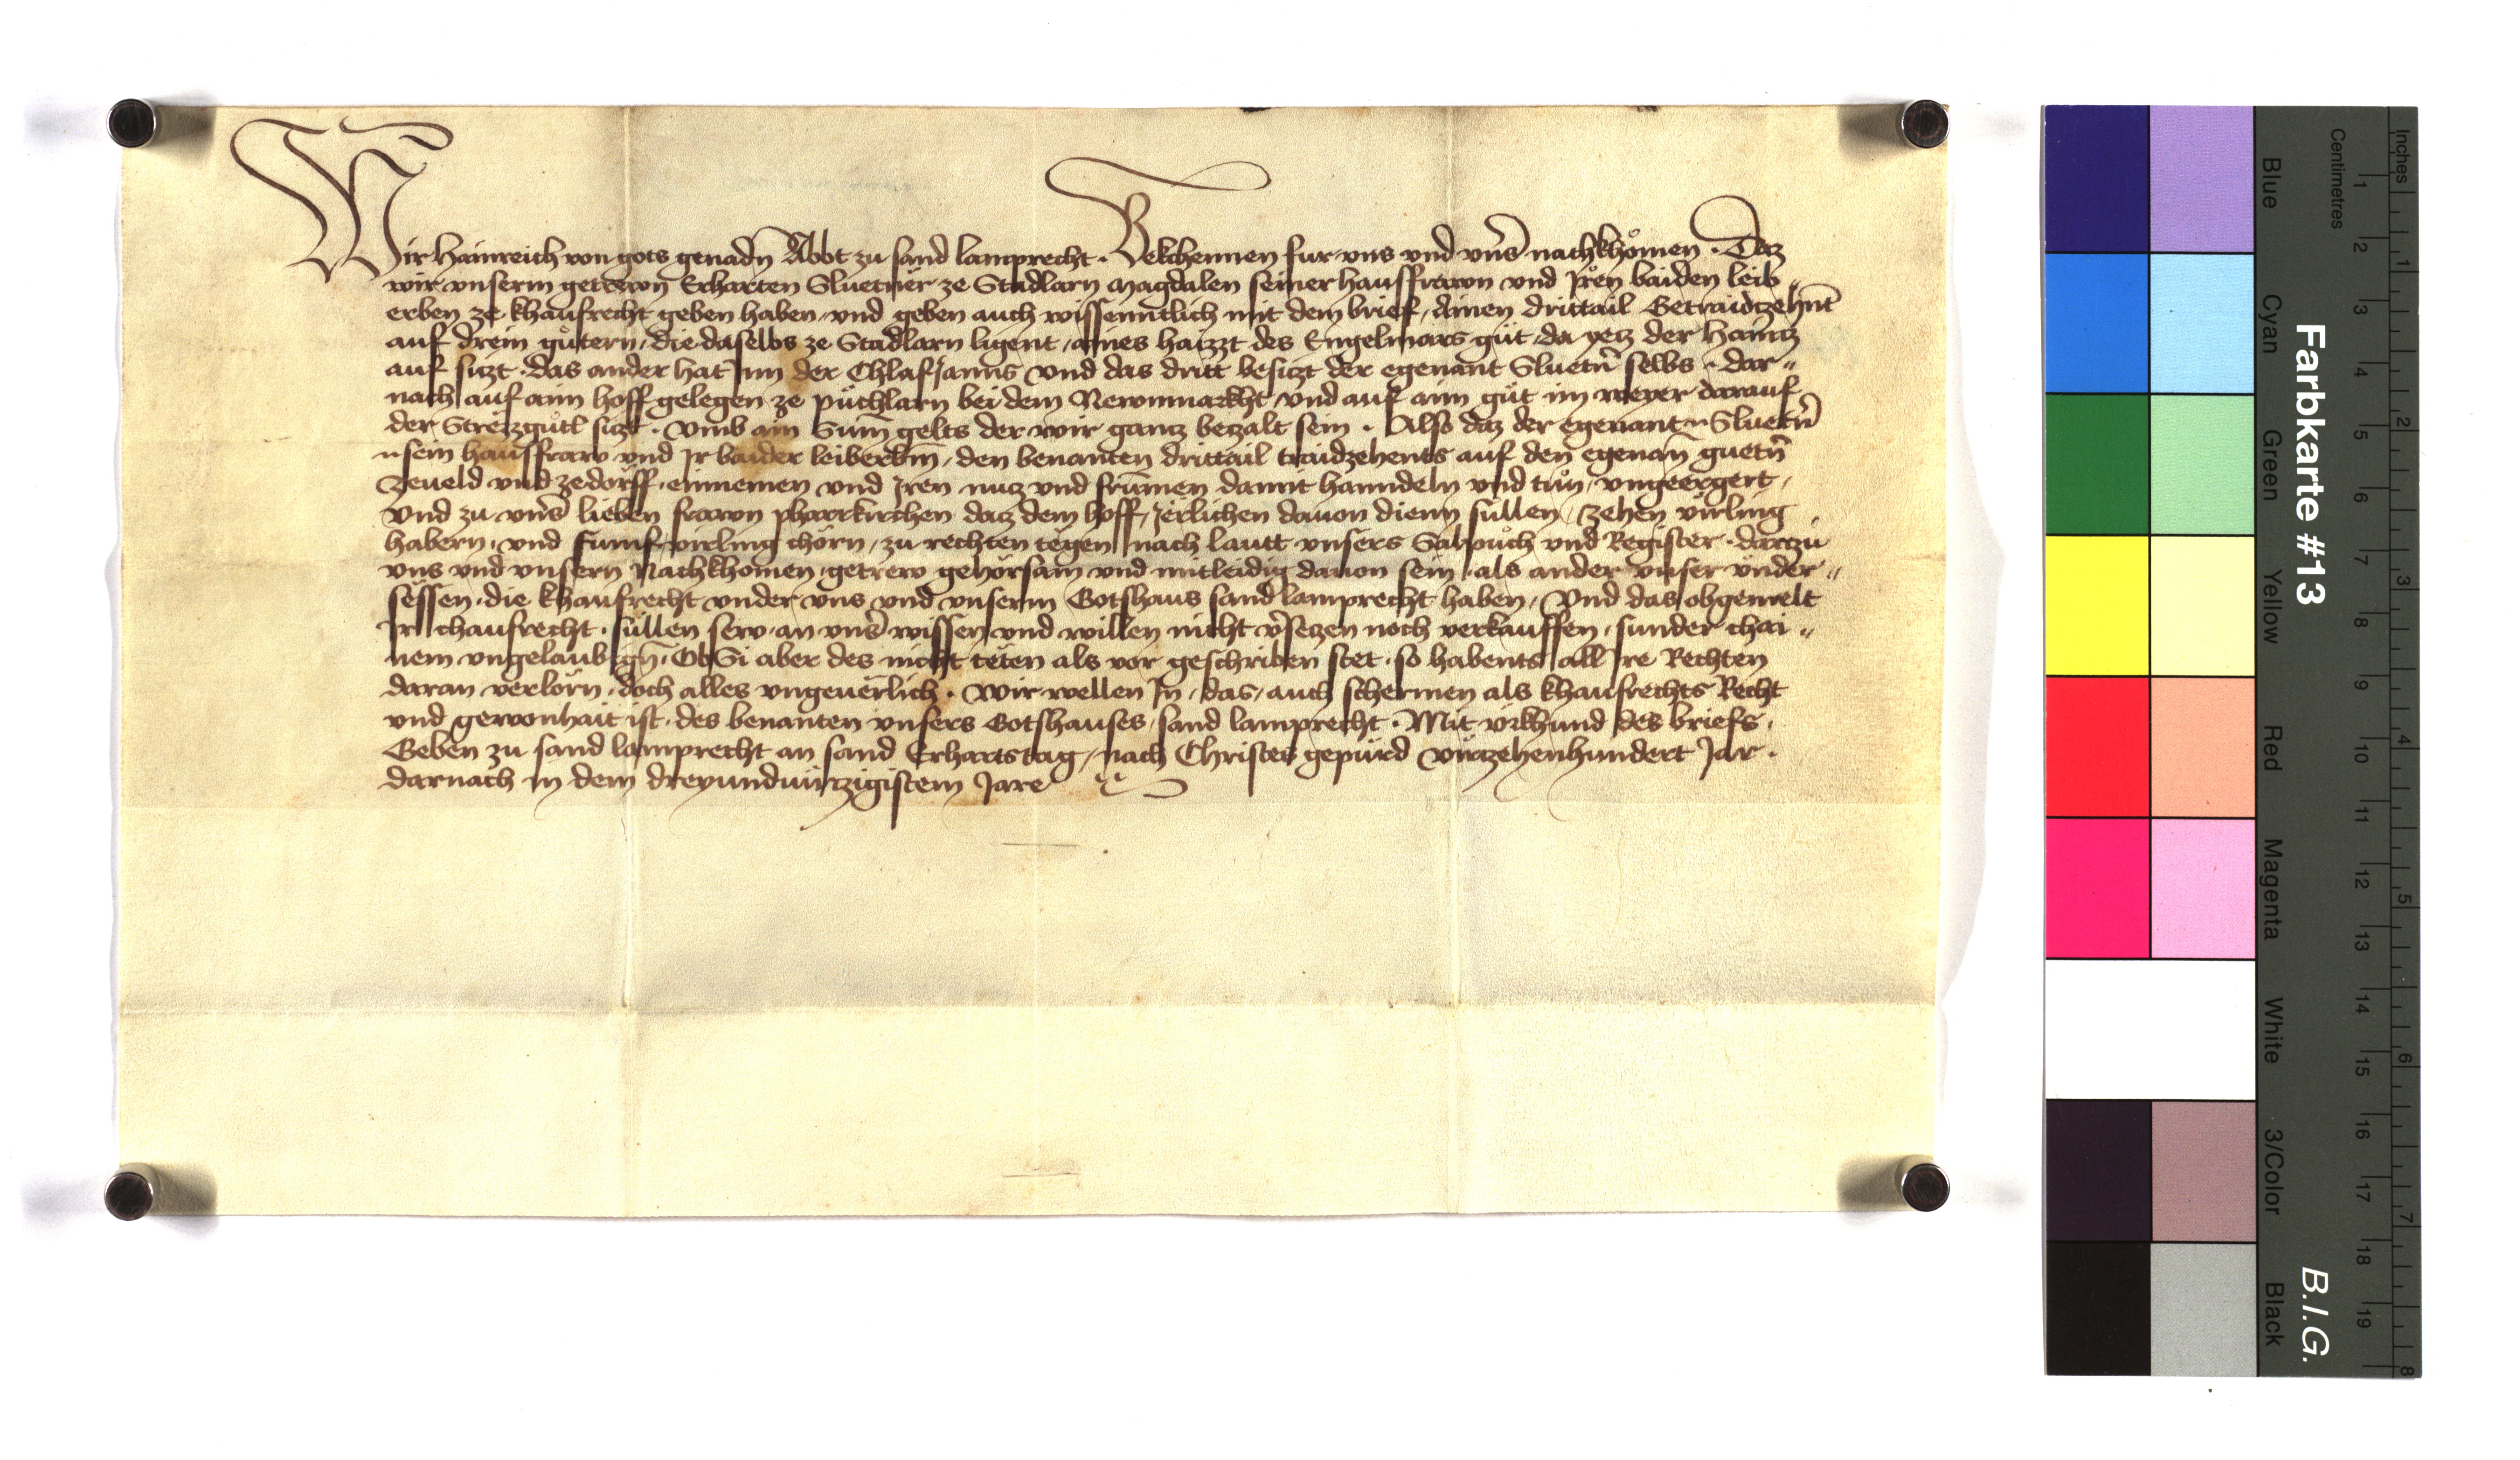 Wir Hainreich von gots genadn̄ Abbt zu sand lamprecht · Bekchennen fur vns vnd vnſ̄ nachkhömen · Daz
wir vnserm getrewn̄ Erharten Sluetner ze Stadlarn Magdalen seiner hausfrawn vnd Jren baiden leib „
erben ze khaufrecht geben haben, vnd geben auch wissenntlich mit dem brief, Ainen drittail Getraidzehnt
auf drein gůtern, die daselbs ze Stadlarn ligent, aines haizzt des Engelmars gůt, da yetz der Haintz
auf sizt · das ander hat Jnn der Chlafjanns vnd das dritt besizt der egenant Sluetn̄ selbs · dar „
nach auf ainn hoff gelegen ze půchlarn bei dem Newnmarkht, vnd auf ainn gůt im weyer darauf
der Strëizgůtl sizt · vmb ain Sum̄ gelts der wir gantz bezalt sein · Also daz der egenant Sluetn̄
sein hausfraw vnd Jr baider leiberbm̄, den benanten drittail traidzehents auf den egenan̄ guetn̄
zeueld vnd zedorff, einnemen vnd Jren nutz vnd frum̄en damit hanndeln vnd tůn, vngeergert,
Vnd zu vnſ̄ lieben frawn pharrkirchen datz dem hoff, Jërlichen dauon dienn süllen, zehen virling
habern, vnd fumf virling chorn, zu rechten tëgen nach lautt vnsers Salpuch vnd Register · dartzu
vns vnd vnsern Nachkhomen, getrew gehorsam vnd mitleidig dauon sein, als ander vnser vnder „
sëssen · die khaufrecht vnder vns vnd vnserm Gotshaus sand lamprecht haben, Vnd das obgemelt
Jr chaufrecht · süllen sew, an vnſ̄ wissen vnd willen nicht v̄setzen noch verkauffen, sunder chai „
nem vngelaubign̄ · Ob Si aber des nicht tëten als vor geschriben stet · so habents all Jre Rechten
daran verlorn · doch alles vngeuerlich · Wir wellen Jn, das, auch schermen als khaufrechts Recht
vnd gewonhait ist, des benanten vnsers Gotshauses, sand lamprecht · Mit vrkhund des briefs,
Geben zu sand lamprecht an sand Erhartstag, nach Christes gepurd virtzehenhundert Jar ·
darnach in dem dreyundvirtzigistem Jare
Farbkarte #13
B.I.G.
Inches
Centimetres
1 2 3 4 5 6 7 8 9 10 11 12 13 14 15 16 17 18 19
1 2 3 4 5 6 7 8
Blue
Cyan
Green
Yellow
Red
Magenta
White
3/Color
Black